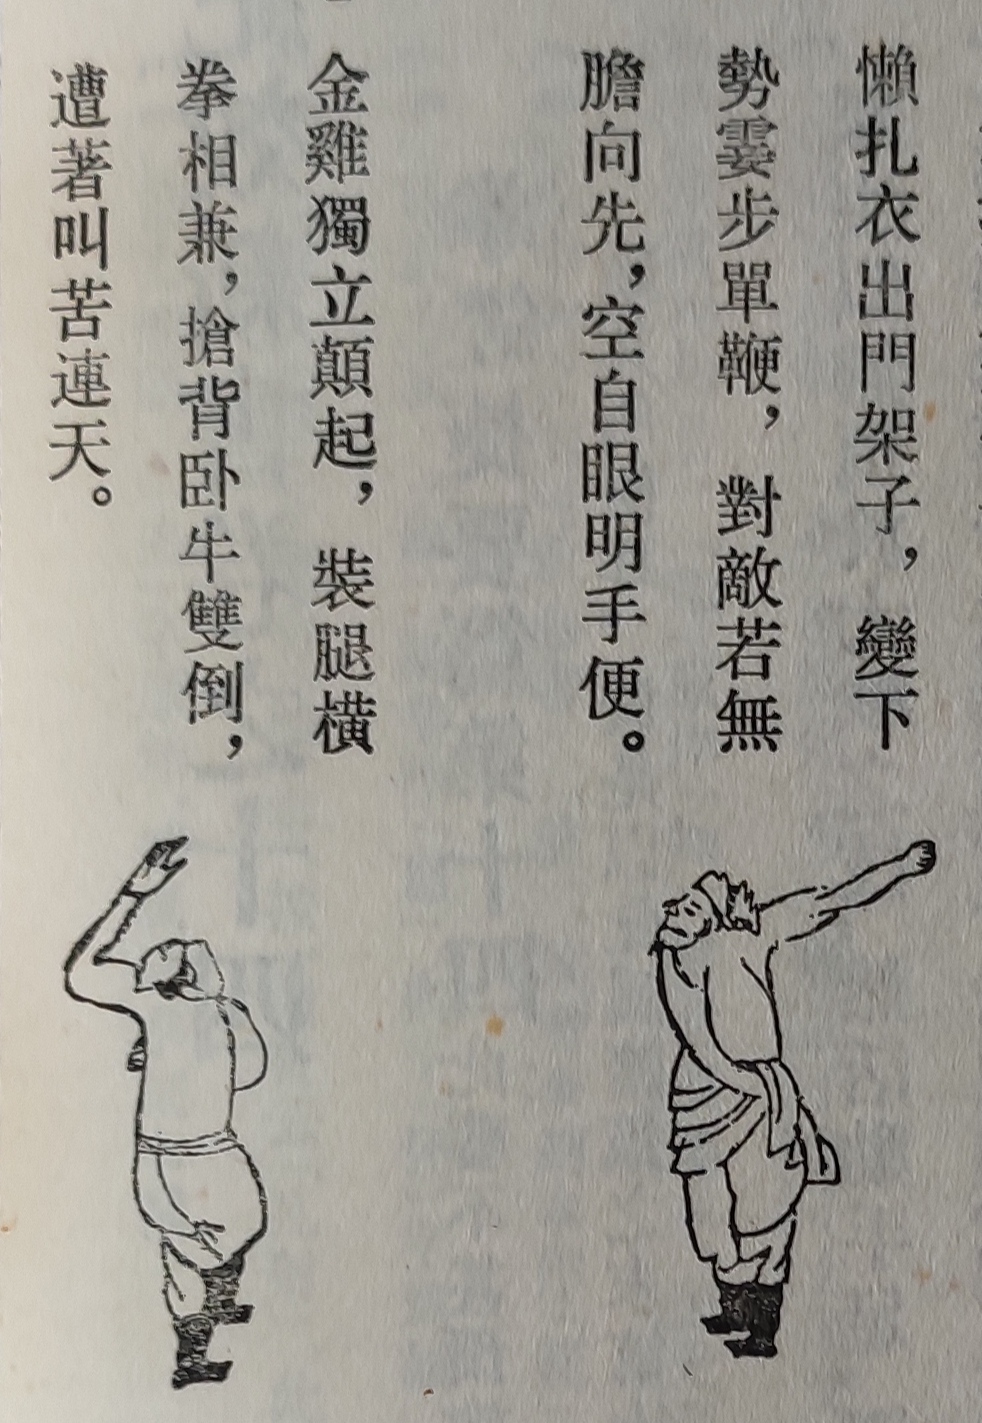 懶扎衣出門架子，變下
勢霎步單鞭，對敵若無
膽向先，空自眼明手便。
金雞獨立顛起，裝腿橫
拳相兼，搶背卧牛雙倒，
遭著叫苦連天。